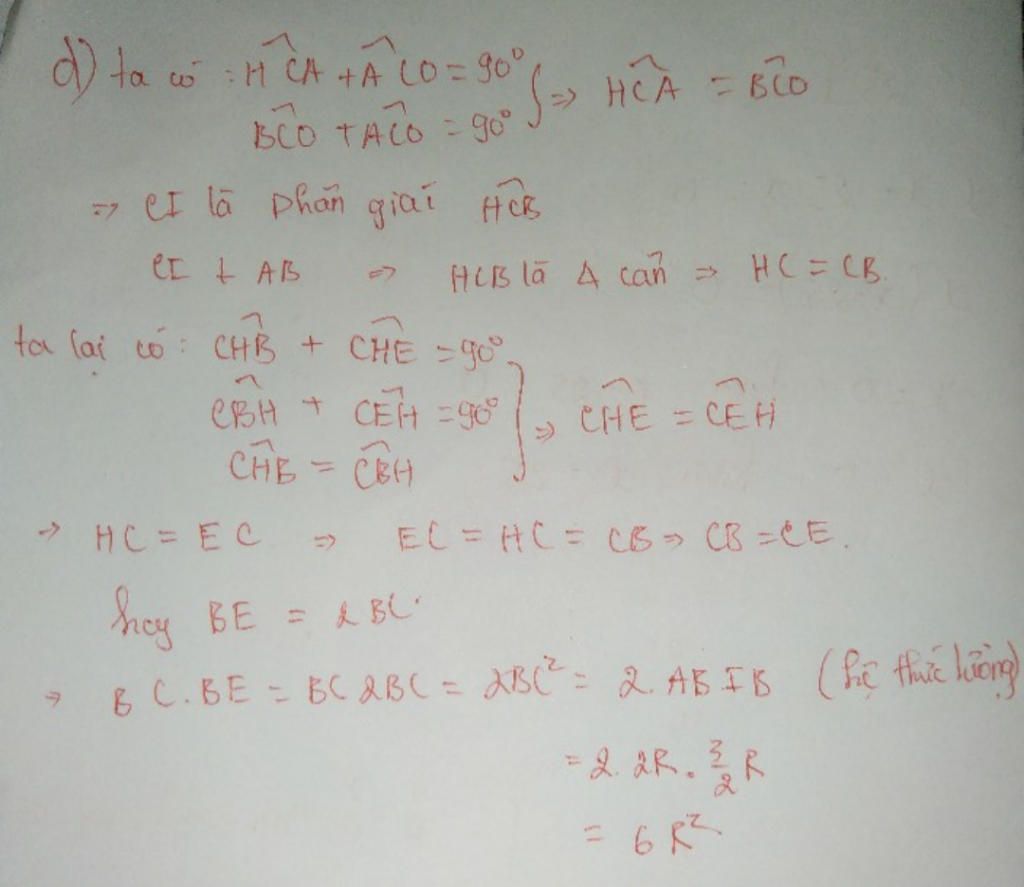 d) ta có : HĈA + AĈO = 90°
BĈO + AĈO = 90° } => HĈA = BĈO
=> CI là phân giác HĈB
CI ⊥ AB => HCB là Δ cân => HC = CB.
ta lại có : CĤB + CĤE = 90°
CB̂H + CÊH = 90° } => CĤE = CÊH
CĤB = CB̂H
=> HC = EC => EC = HC = CB => CB = CE.
hay BE = 2BC.
=> BC.BE = BC 2BC = 2BC² = 2.AB IB (hệ thức lượng)
= 2. 2R. 3/2 R
= 6R²